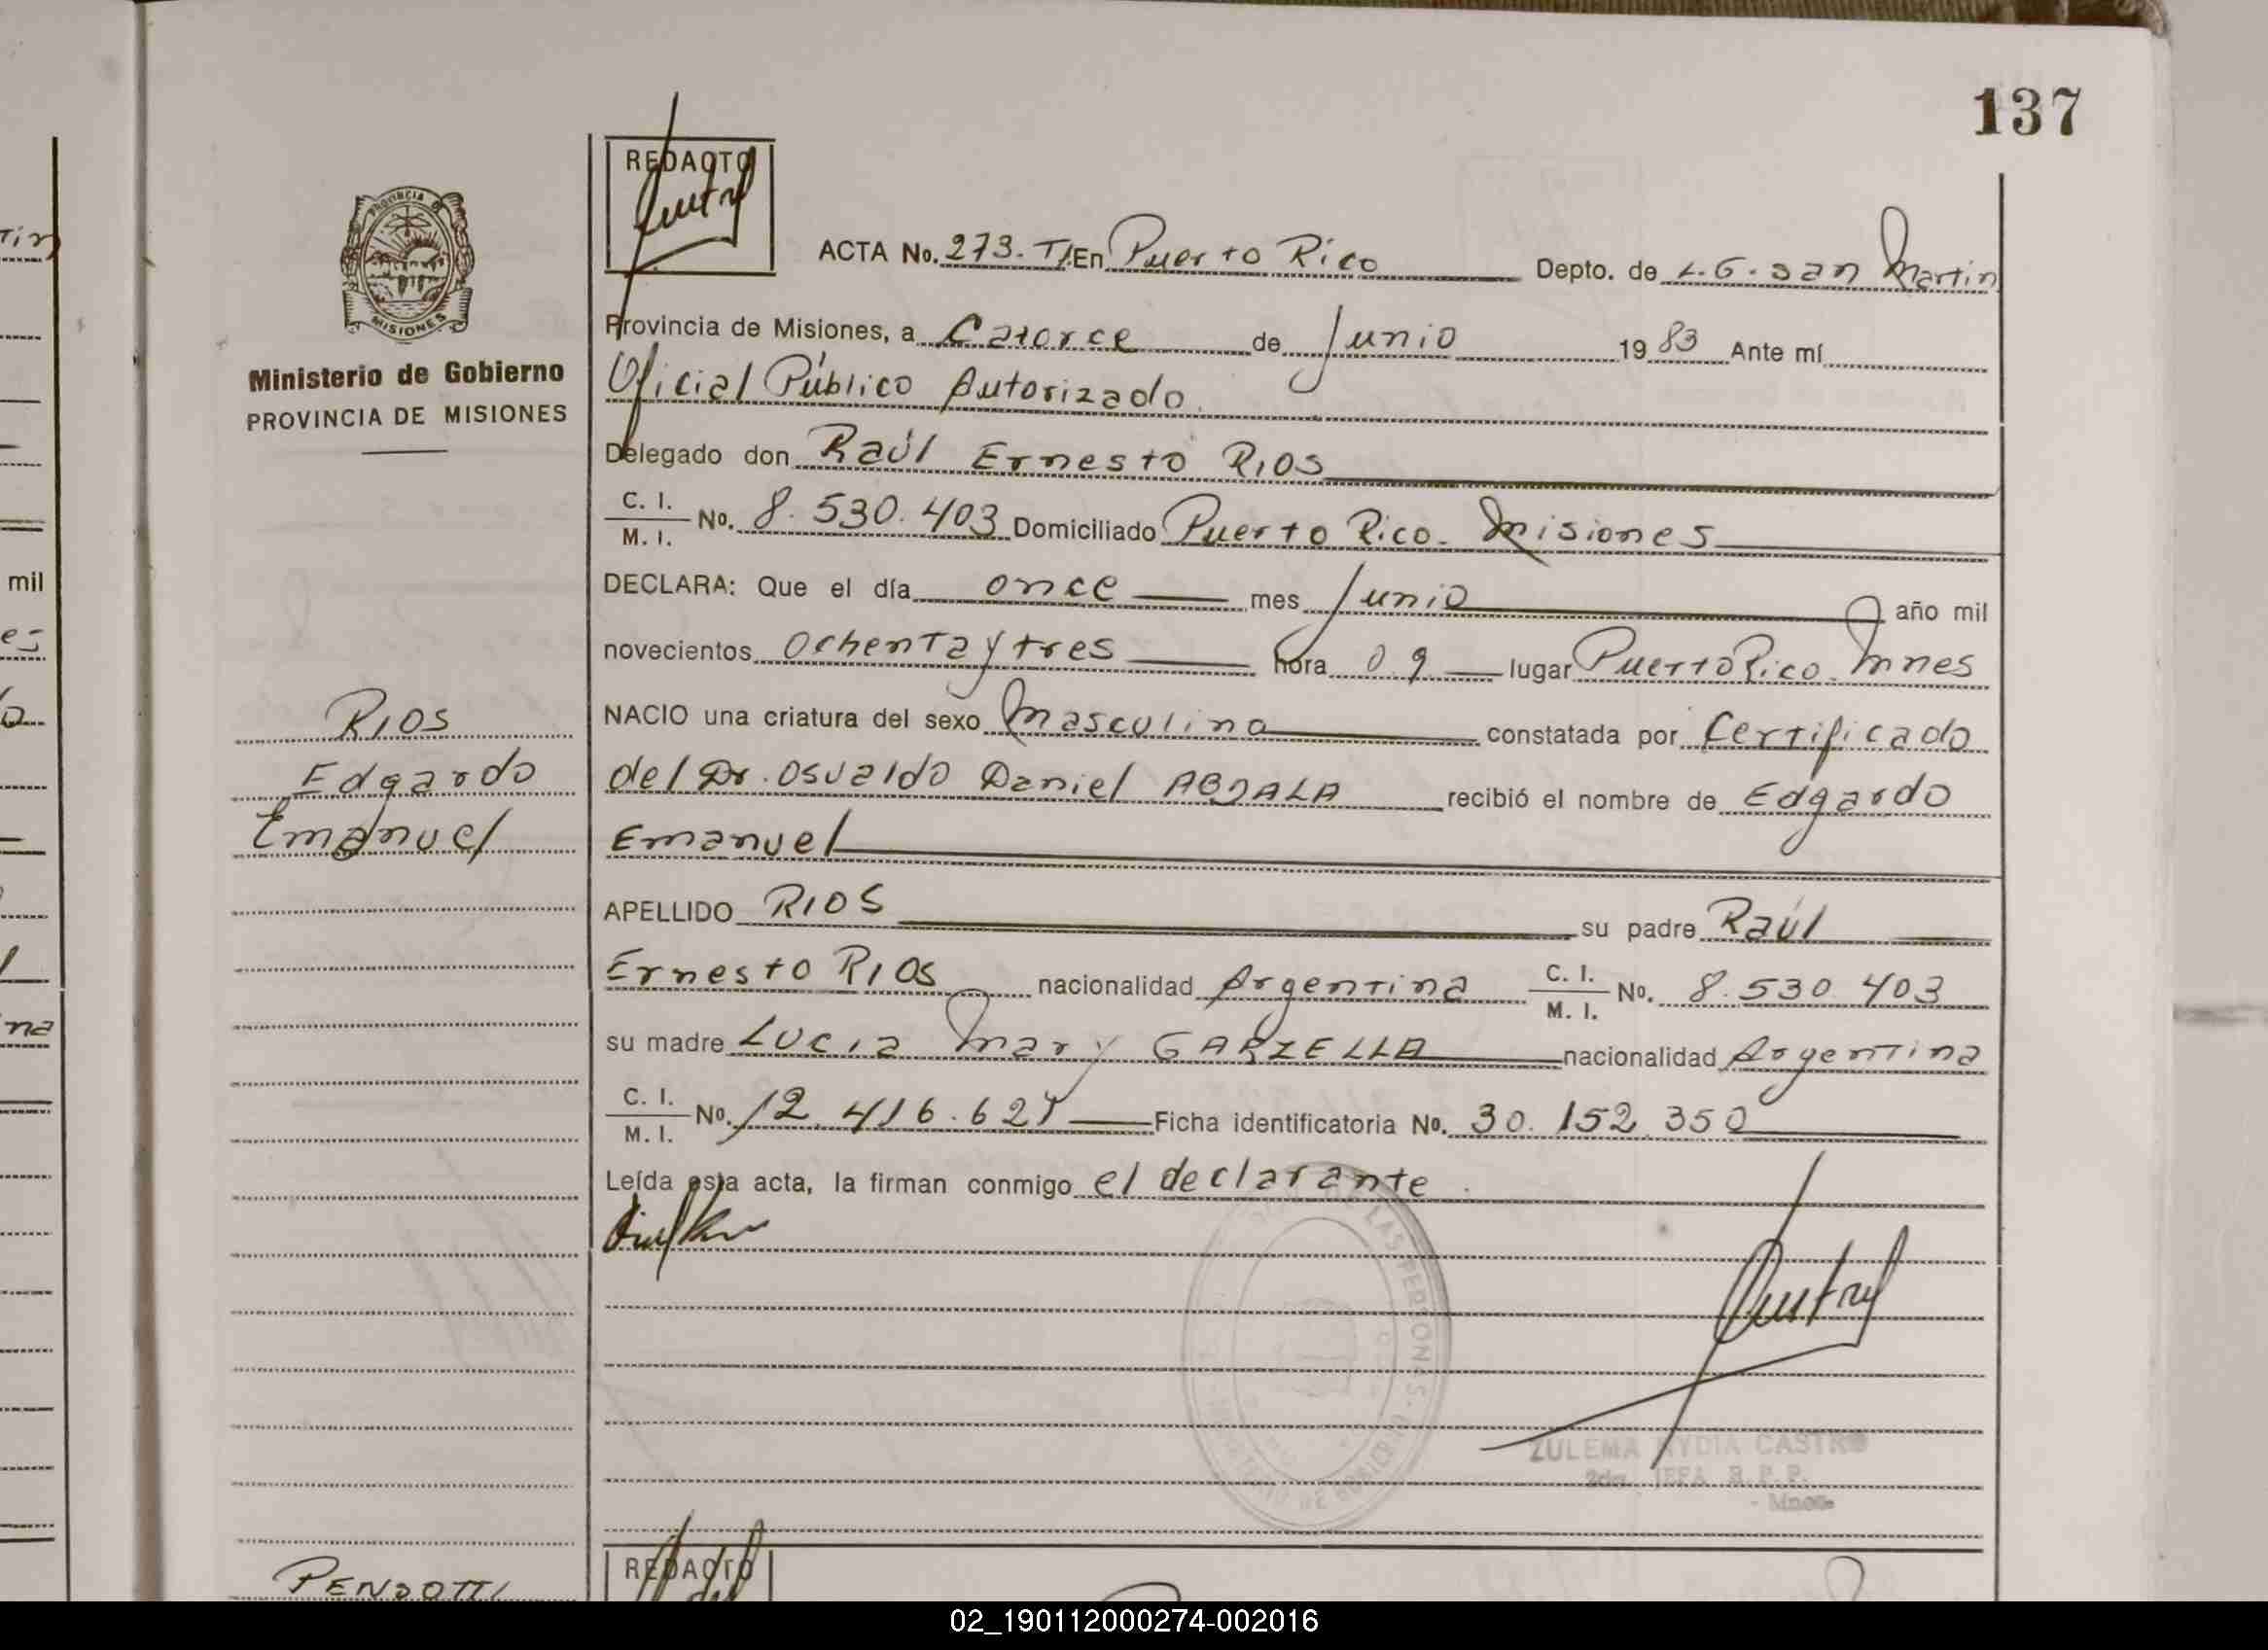 137
REDACTO
PROVINCIA DE
MISIONES
Ministerio de Gobierno
PROVINCIA DE MISIONES
ACTA No. 273. T/. En Puerto Rico Depto. de L.G. San Martin
Provincia de Misiones, a Catorce de Junio 1983 Ante mí
Oficial Público Autorizado.
Delegado don Raúl Ernesto RIOS
C. I.
M. I. No. 8.530.403 Domiciliado Puerto Rico. Misiones
DECLARA: Que el día once mes Junio año mil
novecientos Ochenta y tres hora 09 lugar Puerto Rico. Mnes
NACIO una criatura del sexo Masculino constatada por Certificado
del Dr. Osvaldo Daniel ABDALA recibió el nombre de Edgardo
Emanuel
APELLIDO RIOS su padre Raúl
Ernesto RIOS nacionalidad Argentina C. I.
M. I. No. 8.530.403
su madre Lucia Mary GARZELLA nacionalidad Argentina
C. I.
M. I. No. 12.416.627 Ficha identificatoria No. 30.152.350
Leída esta acta, la firman conmigo el declarante.
RIOS
Edgardo
Emanuel
LAS PERSONAS
ZULEMA NYDIA CASTRO
2da. JEFA R.P.P.
- Mnes-
PENSOTTI
REDACTO
tin
mil
es
na
02_190112000274-002016